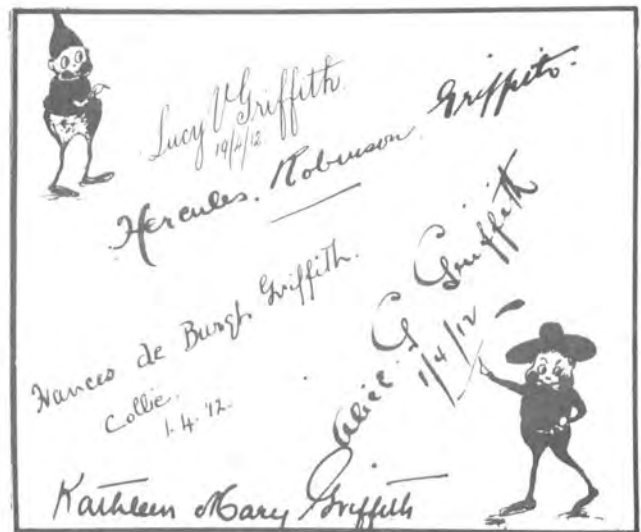 Lucy V Griffith.
19/4/12
Hercules. Robinson. Griffith.
Frances de Burgh Griffith.
Collie.
1.4.'12.
Alice G Griffith
1/4/12
Kathleen Mary Griffith